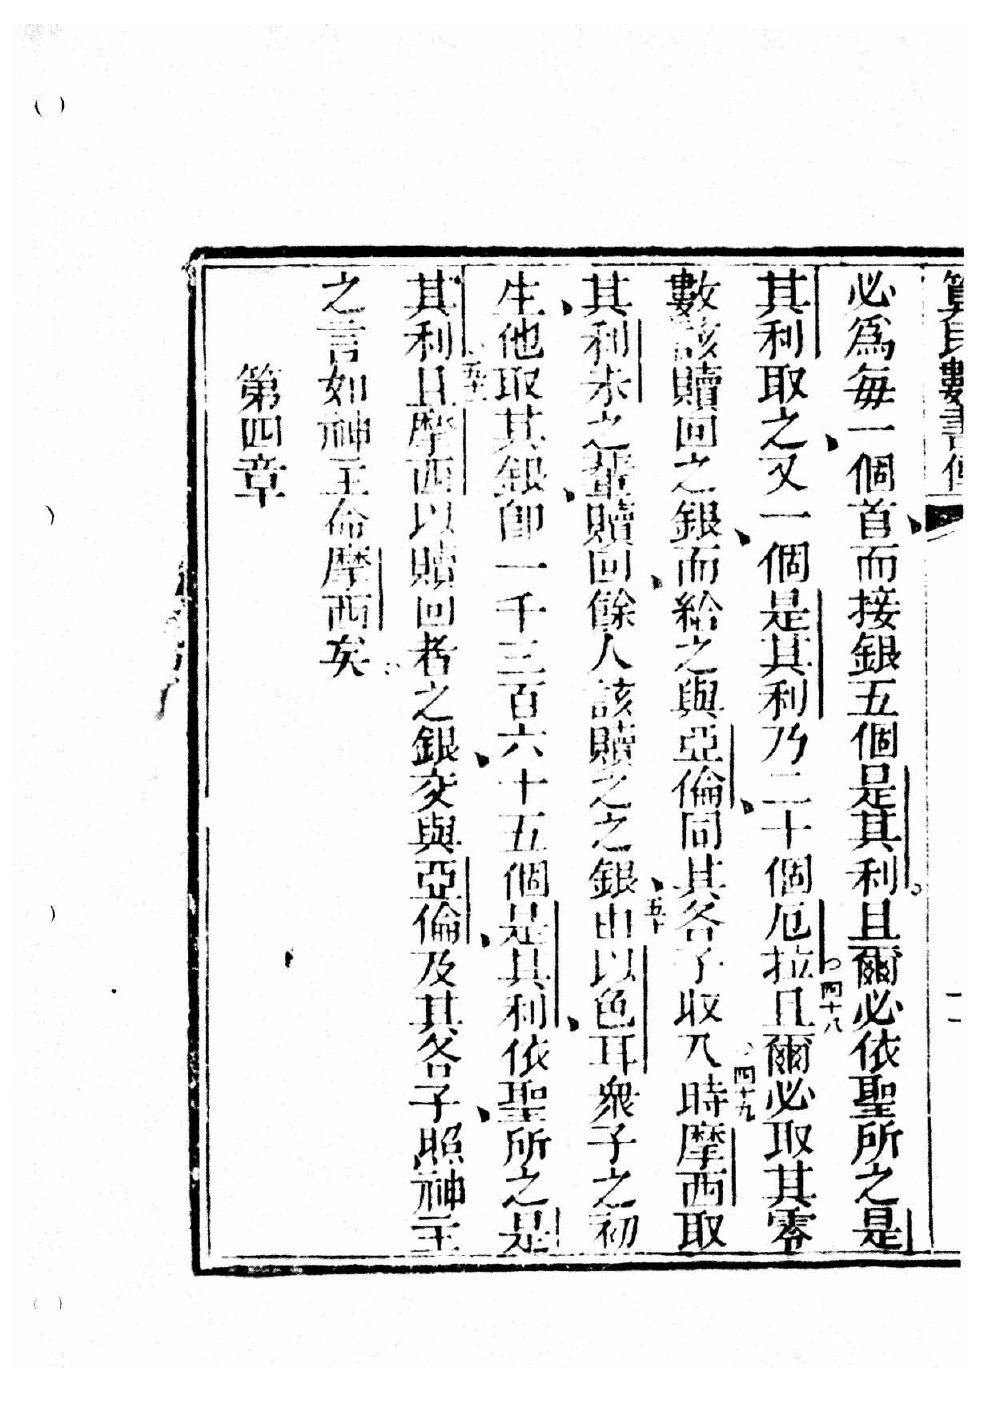 算民數書傳
必為每一個首而接銀五個是其利且爾必依聖所之是
其利取之又一個是其利乃二十個厄拉四十八且爾必取其零
數該贖回之銀而給之與亞倫同其各子收入四十九時摩西取
其利未之輩贖回餘人該贖之之銀五十由以色耳衆子之初
生他取其銀即一千三百六十五個是其利依聖所之是
其利五十一且摩西以贖回者之銀交與亞倫及其各子照神主
之言如神主命摩西矣
第四章